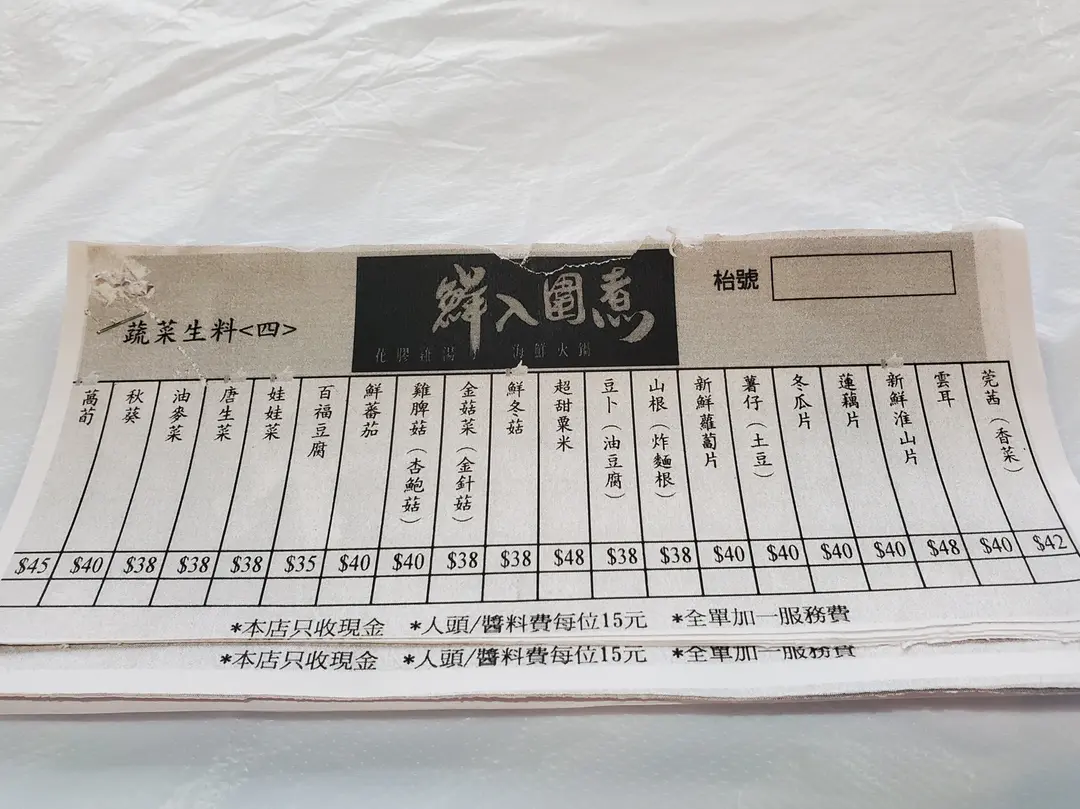 鮮入圍煮
海鮮火鍋
枱號
蔬菜生料<四>
萵荀
秋葵
油麥菜
唐生菜
娃娃菜
百福豆腐
鮮蕃茄
雞脾菇（杏鮑菇）
金菇菜（金針菇）
鮮冬菇
超甜粟米
豆卜（油豆腐）
山根（炸麵根）
新鮮蘿蔔片
薯仔（土豆）
冬瓜片
蓮藕片
新鮮淮山片
雲耳
莞茜（香菜）
$45 $40 $38 $38 $38 $35 $40 $40 $38 $38 $48 $38 $38 $40 $40 $40 $40 $48 $40 $42
*本店只收現金 *人頭/醬料費每位15元 *全單加一服務費
*本店只收現金 *人頭/醬料費每位15元 *全單加一服務費